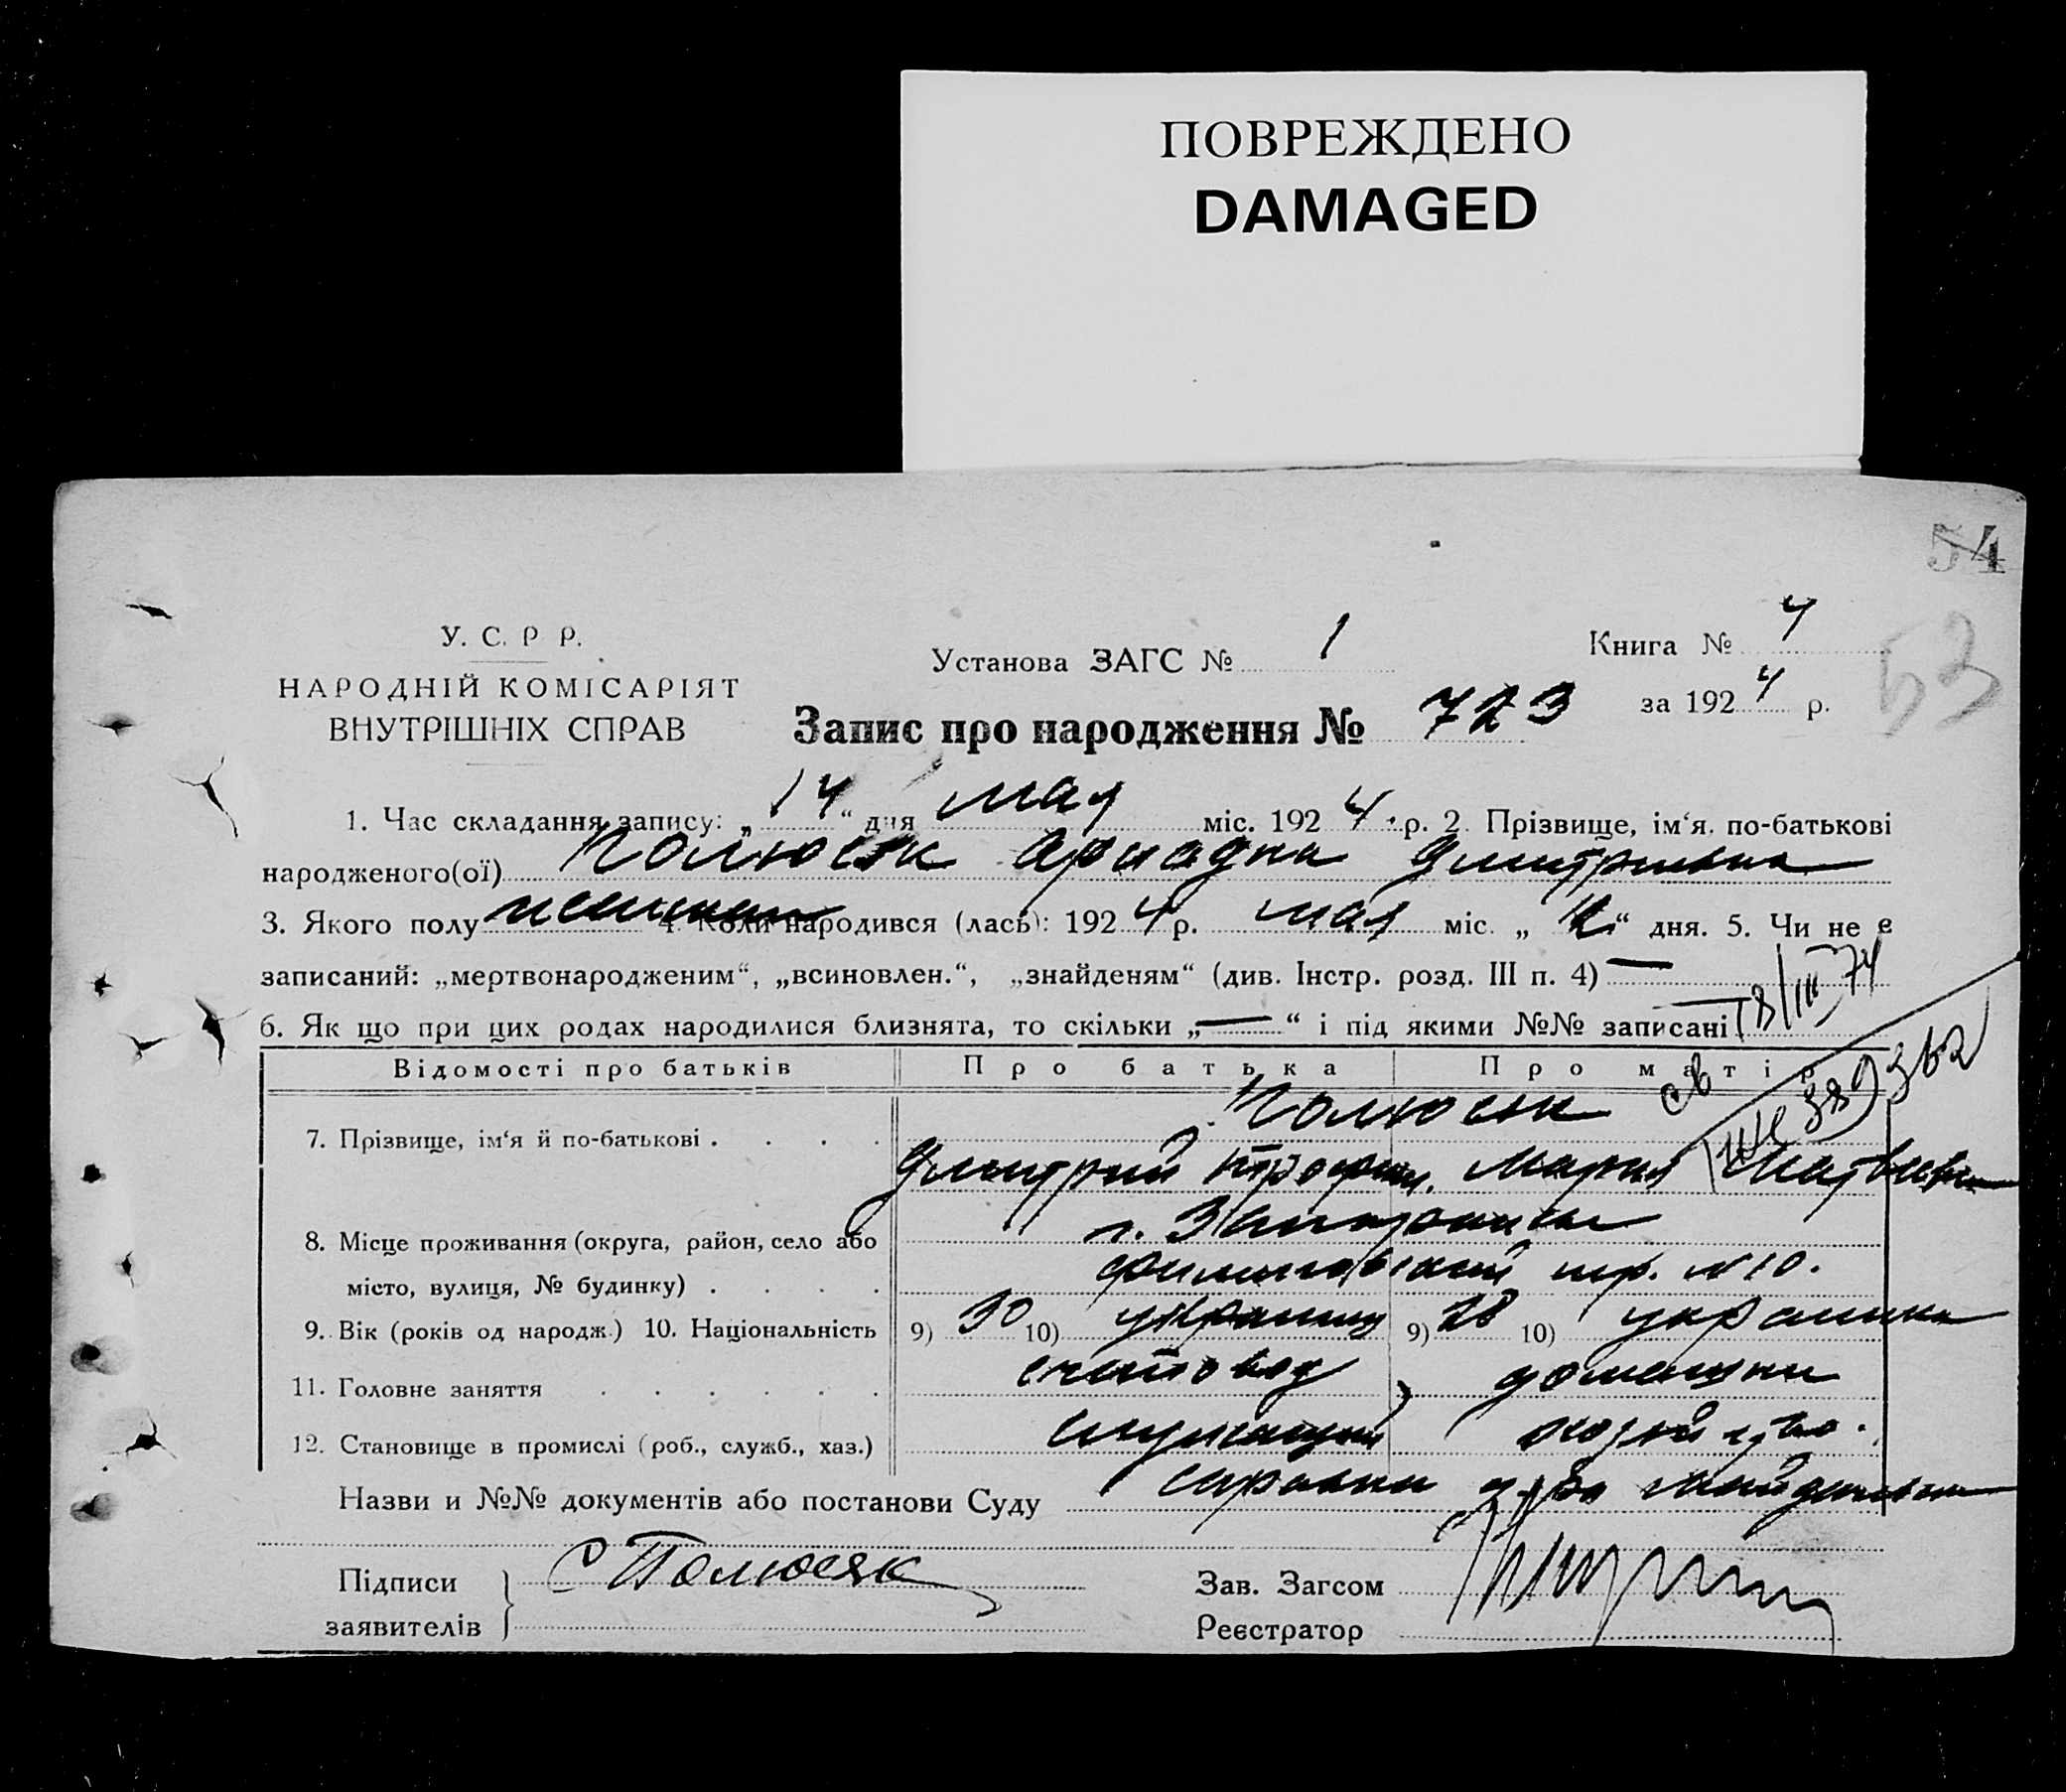 ПОВРЕЖДЕНО
DAMAGED
54
53
У. С. Р. Р.
НАРОДНІЙ КОМІСАРІЯТ
ВНУТРІШНІХ СПРАВ
Установа ЗАГС № 1
Книга № 4
за 1924 р.
Запис про народження № 723
1. Час складання запису: „14“ дня мая міс. 1924 р. 2. Прізвище, ім‘я, по-батькові
народженого(ої) Полюсяк Ариадна Дмитриевна
3. Якого полу женский 4. Коли народився (лась): 1924 р. мая міс. „ “ дня. 5. Чи не є
записаний: „мертвонародженим“, „всиновлен.“, „знайденям“ (див. Інстр. розд. III п. 4) —
6. Як що при цих родах народилися близнята, то скільки „—“ і під якими №№ записані
8/III 74
Відомості про батьків Про батька Про матір
7. Прізвище, ім‘я й по-батькові . . . . Полюсяк
Дмитрий Трофим. Мария Матвеевна
8. Місце проживання (округа, район, село або г. Запорожье
місто, вулиця, № будинку) . . . . №10.
9. Вік (років од народж.) 10. Національність 9) 30 10) украинец 9) 28 10) украинка
11. Головне заняття . . . . . . счетовод домашнее
12. Становище в промислі (роб., служб., хаз.) служащий хозяйство.
Назви и №№ документів або постанови Суду справка
Підписи
заявителів
Полюсяк
Зав. Загсом
Реєстратор